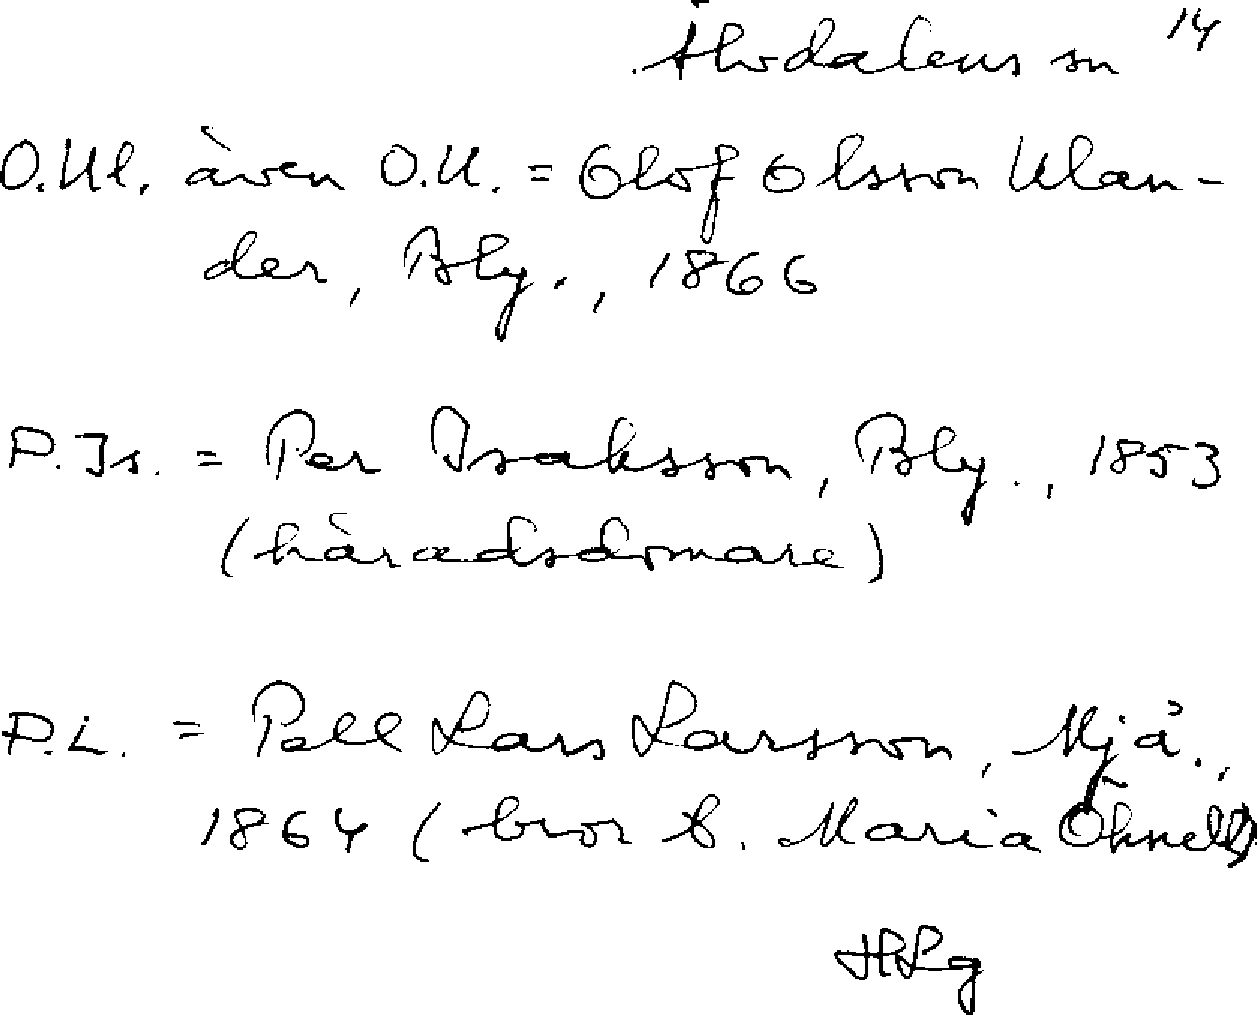 Älvdalens sn 14
O.Ul. även O.U. = Olof Olsson Ulan-
der, Bly., 1866
P.Is. = Per Isaksson, Bly., 1853
(häradsdomare)
P.L. = Pell Lars Larsson, Mjå.,
1864 (bror t. Maria Öhnell)
HLg